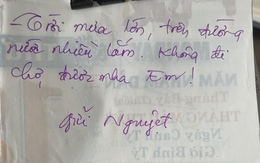 Trời mưa lớn, trên đường
nước nhiều lắm. Không đi
chợ được nha Em!
Gửi Nguyệt
NĂM NHÂM DẦN
Tháng Bảy
THÁNG
Ngày Can
Giờ Bính Tý